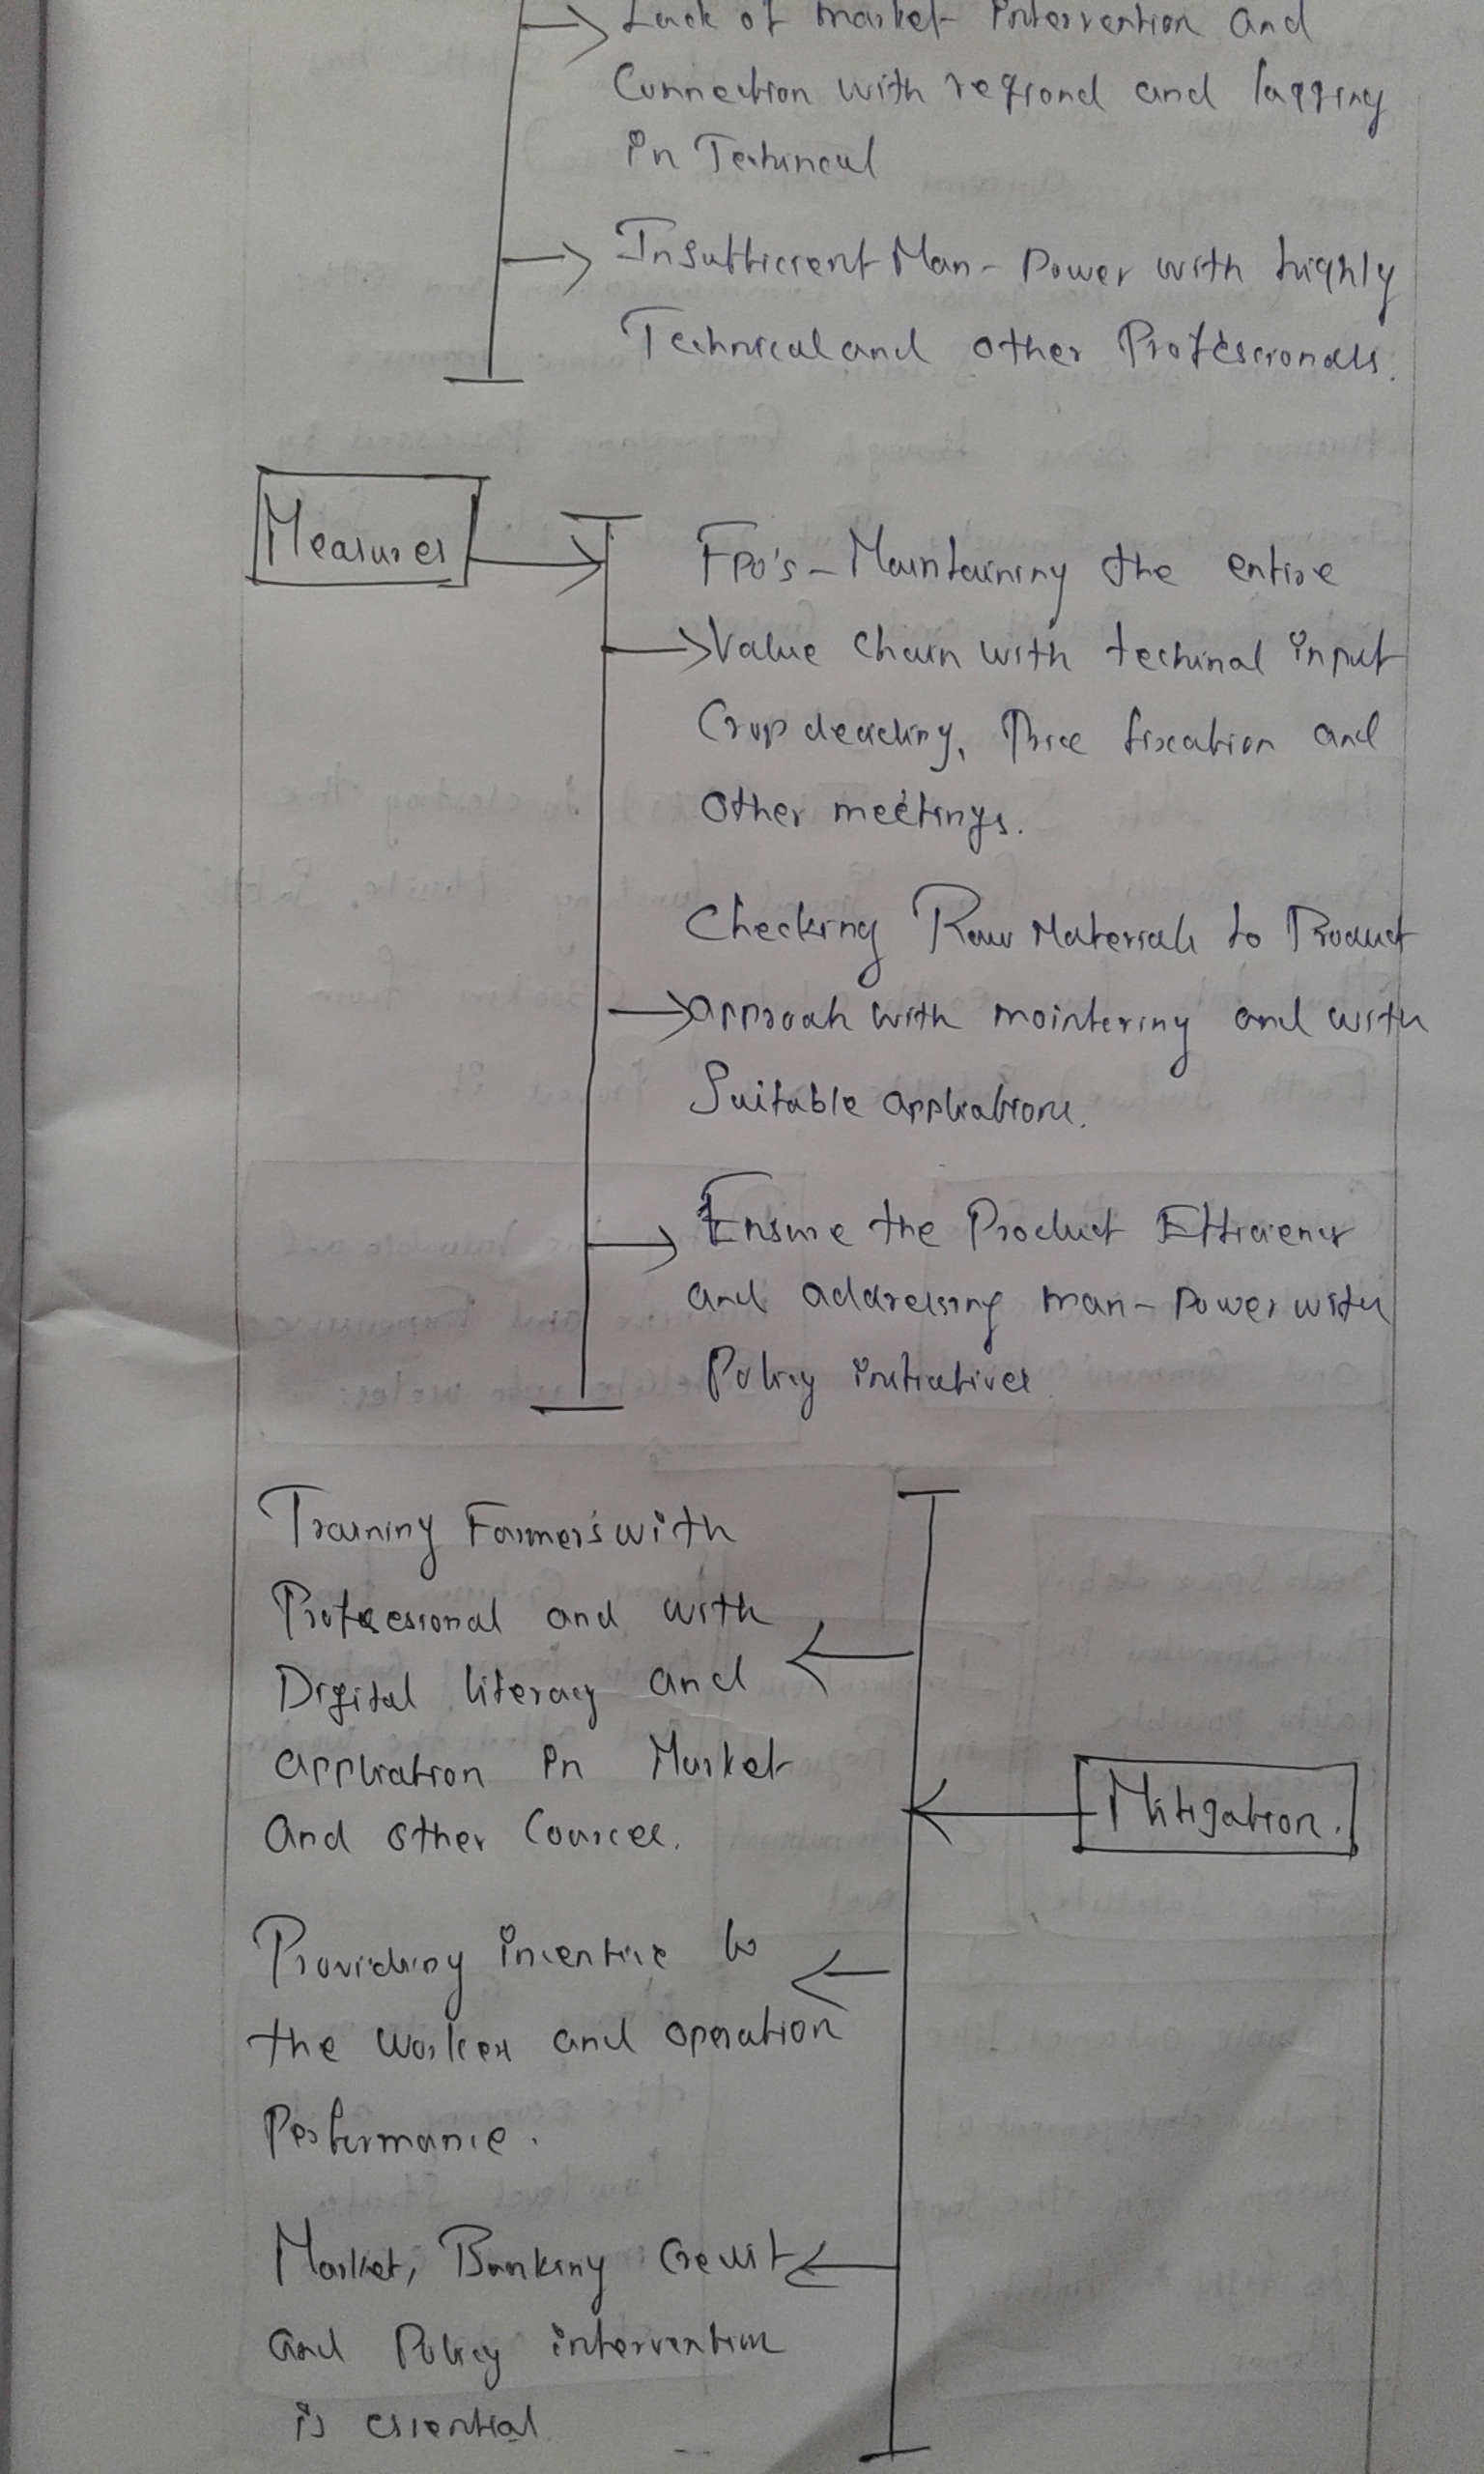 Lack of market intervention and
Connection with regiond and lagging
in Techincal
Insufficient Man-Power with highly
Technical and other Professionals.
Measures
FPO's - Maintaining the entire
Value Chain with techinal input
Crop deciding, Price fixation and
Other meetings.
Checking Raw Materials to Product
approah with mointering and with
Suitable applications.
Ensure the Product Efficiency
and addressing man-power with
Policy initiatives
Training Farmer's with
Professional and with
Digital literacy and
application in Market
And other Cources.
Mitigation.
Providing incentive to
the worker and operation
Performance.
Market, Banking Credit
and Policy intervention
is essential